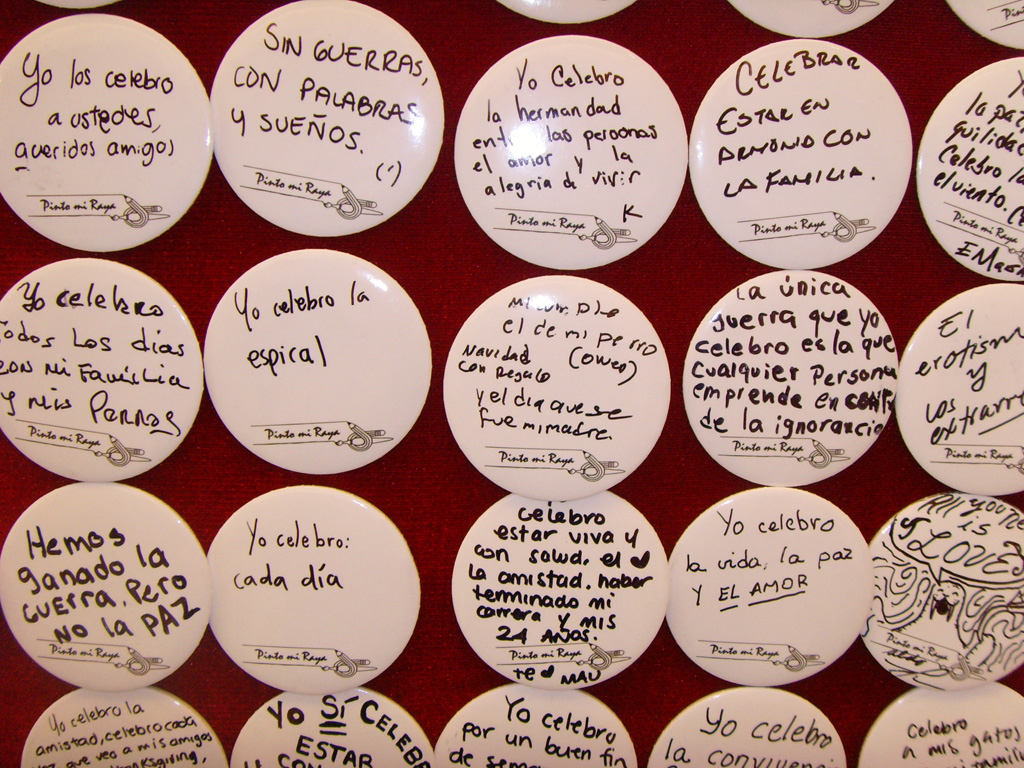 Yo los celebro
a ustedes,
queridos amigos
Pinto mi Raya
SIN GUERRAS,
CON PALABRAS
Y SUEÑOS.
(')
Pinto mi Raya
Yo Celebro
la hermandad
entre las personas
el amor y la
alegria de vivir
K
Pinto mi Raya
CELEBRAR
ESTAR EN
ARMONIO CON
LA FAMILIA.
Pinto mi Raya
la paz
Celebro la
el viento.
Pinto mi
Yo celebro
Todos Los días
con mi Familia
y mis Perros
Pinto mi Raya
Yo celebro la
espiral
Pinto mi Raya
el de mi perro
NAVIDAD (owen)
CON Regalo
y el dia que se
fue mi madre.
Pinto mi Raya
La única
guerra que yo
celebro es la que
cualquier persona
emprende en contra
de la ignorancia
Pinto mi Raya
El
erotismo
y
Los
Pinto mi Raya
Hemos
ganado la
guerra. Pero
NO la PAZ
Pinto mi Raya
Yo celebro:
cada día
Pinto mi Raya
celebro
estar viva y
con salud, el ♥
la amistad. haber
terminado mi
carrera y mis
24 AÑOS.
Pinto mi Raya
te ♥ MAU
Yo celebro
la vida, la paz
y EL AMOR
Pinto mi Raya
All you need
is
LOVE
Pinto mi Raya
Yo celebro la
amistad, celebro cada
vez que veo a mis amigos
thanksgiving,
Yo SÍ CELEBRO
ESTAR
Yo celebro
por un buen fin
de semana
Yo celebro
la convivencia
Celebro
a mis gatos